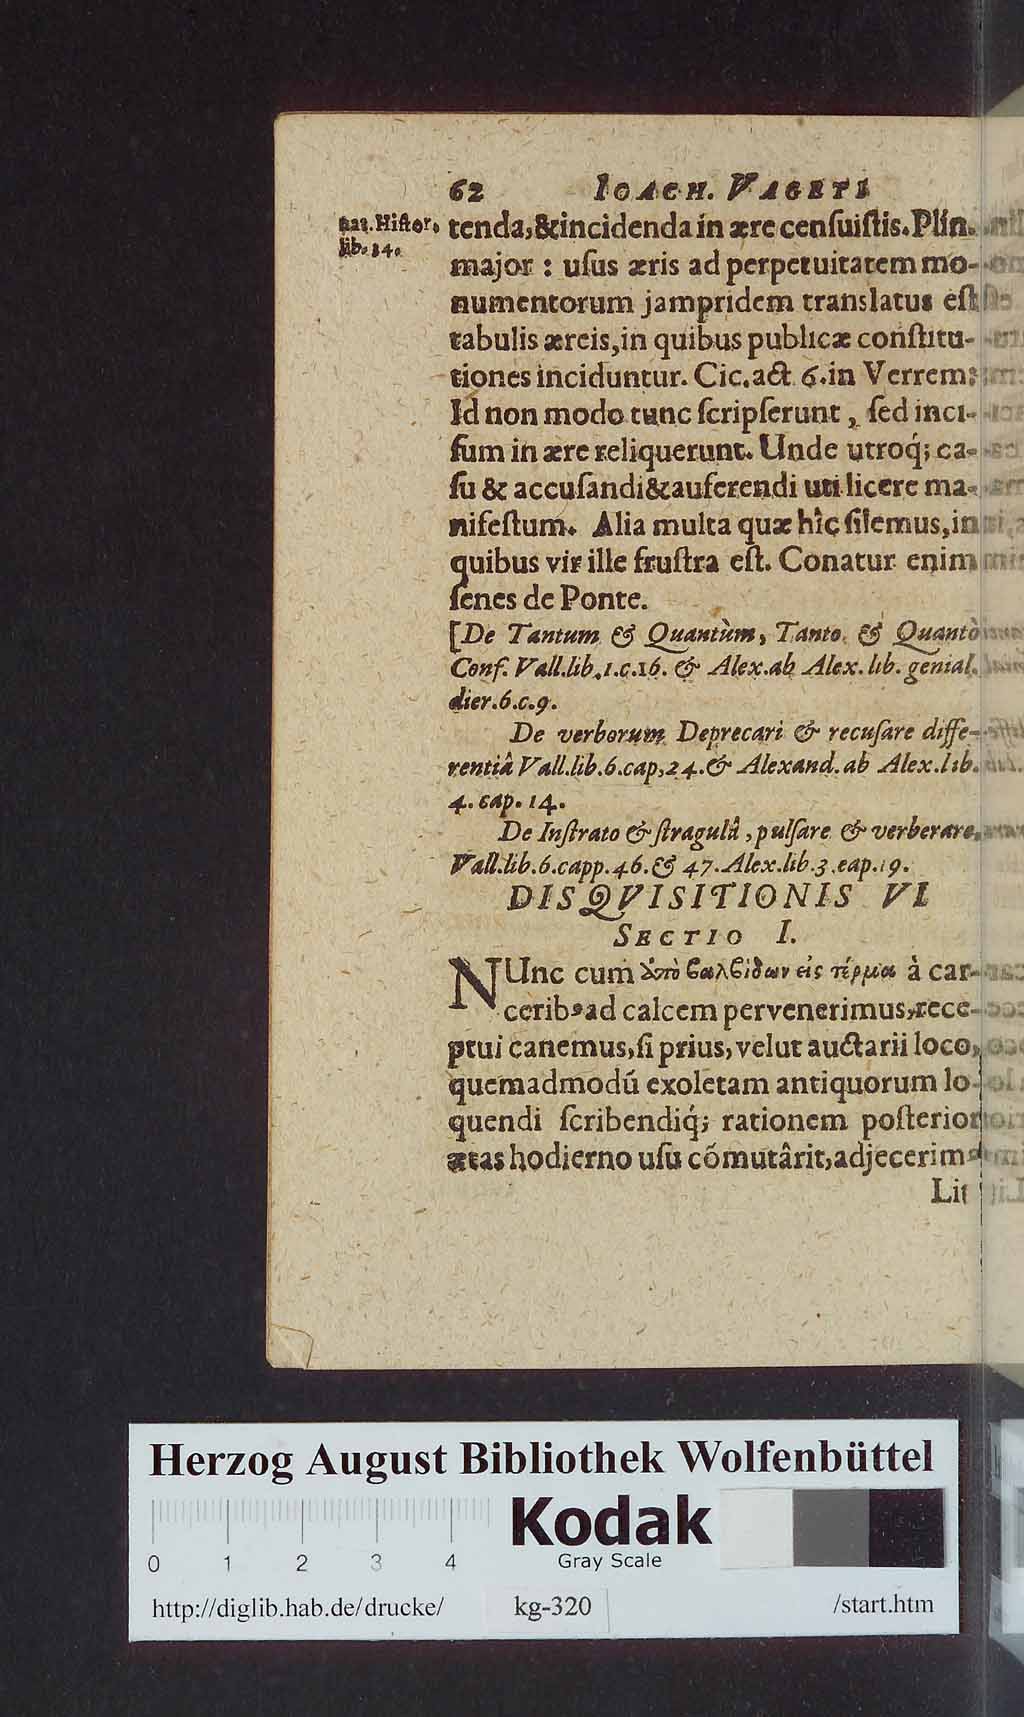 62 IOACH. VAGETI
nat. Histor.
lib. 34.
tenda, & incidenda in ære censuistis. Plin.
major : usus æris ad perpetuitatem mo-
numentorum jampridem translatus est
tabulis æreis, in quibus publicæ constitu-
tiones inciduntur. Cic. act. 6. in Verrem:
Id non modo tunc scripserunt, sed inci-
sum in ære reliquerunt. Unde utroq́; ca-
su & accusandi & auferendi uti licere ma-
nifestum. Alia multa quæ hîc silemus, in
quibus vir ille frustra est. Conatur enim
senes de Ponte.
[De Tantum & Quantùm, Tanto & Quantò
Conf. Vall. lib. 1. c. 16. & Alex. ab Alex. lib. genial.
dier. 6. c. 9.
De verborum Deprecari & recusare diffe-
rentiâ Vall. lib. 6. cap. 24. & Alexand. ab Alex. lib.
4. cap. 14.
De Instrato & stragulâ, pulsare & verberare,
Vall. lib. 6. capp. 46. & 47. Alex. lib. 3. cap. 19.
DISQVISITIONIS VI
SECTIO I.
NUnc cum ἀπὸ βαλβίδων εἰς τέρμα à car-
cerib9 ad calcem pervenerimus, rece-
ptui canemus, si prius, velut auctarii loco,
quemadmodú exoletam antiquorum lo-
quendi scribendiq́; rationem posterior
ætas hodierno usu cómutârit, adjecerim9
Lit
Herzog August Bibliothek Wolfenbüttel
Kodak
Gray Scale
0 1 2 3 4
http://diglib.hab.de/drucke/ kg-320 /start.htm